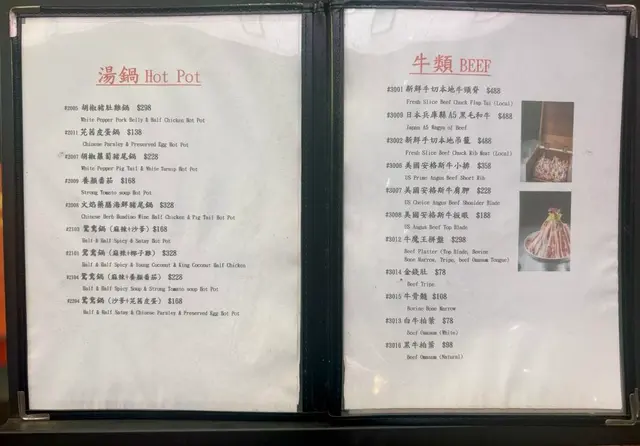 湯鍋 Hot Pot
#2005 胡椒豬肚雞鍋 $298
White Pepper Pork Belly & Half Chicken Hot Pot
#2011 芫茜皮蛋鍋 $138
Chinese Parsley & Preserved Egg Hot Pot
#2007 胡椒蘿蔔豬尾鍋 $228
White Pepper Pig Tail & White Turnip Hot Pot
#2009 養顏番茄 $168
Strong Tomato soup Hot Pot
#2008 火焰藥膳海鮮豬尾鍋 $328
Chinese Herb Huadiao Wine Half Chicken & Pig Tail Hot Pot
#2103 鴛鴦鍋 (麻辣+沙爹) $168
Half & Half Spicy & Satay Hot Pot
#2101 鴛鴦鍋 (麻辣+椰子雞) $328
Half & Half Spicy & Young Coconut & King Coconut Half Chicken
#2104 鴛鴦鍋 (麻辣+養顏番茄) $228
Half & Half Spicy Soup & Strong Tomato soup Hot Pot
#2204 鴛鴦鍋 (沙爹+芫茜皮蛋) $168
Half & Half Satay & Chinese Parsley & Preserved Egg Hot Pot
牛類 BEEF
#3001 新鮮手切本地牛頸脊 $488
Fresh Slice Beef Chuck Flap Tai (Local)
#3009 日本兵庫縣 A5 黑毛和牛 $488
Japan A5 Wagyu of Beef
#3002 新鮮手切本地吊籠 $488
Fresh Slice Beef Chuck Rib Meat (Local)
#3006 美國安格斯牛小排 $358
US Prime Angus Beef Short Rib
#3007 美國安格斯牛肩胛 $228
US Choice Angus Beef Shoulder Blade
#3008 美國安格斯牛板眼 $188
US Angus Beef Top Blade
#3012 牛魔王拼盤 $298
Beef Platter (Top Blade, Bovine
Bone Marrow, Tripe, beef Omasum Tongue)
#3014 金錢肚 $78
Beef Tripe
#3015 牛骨髓 $108
Bovine Bone Marrow
#3013 白牛柏葉 $78
Beef Omasum (White)
#3016 黑牛柏葉 $88
Beef Omasum (Natural)